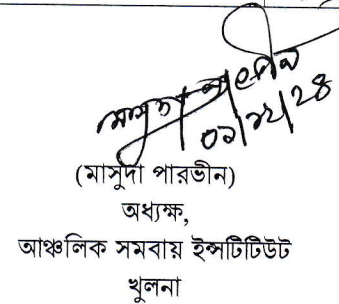 ০১/১২/২৪
(মাসুদা পারভীন)
অধ্যক্ষ,
আঞ্চলিক সমবায় ইন্সটিটিউট
খুলনা